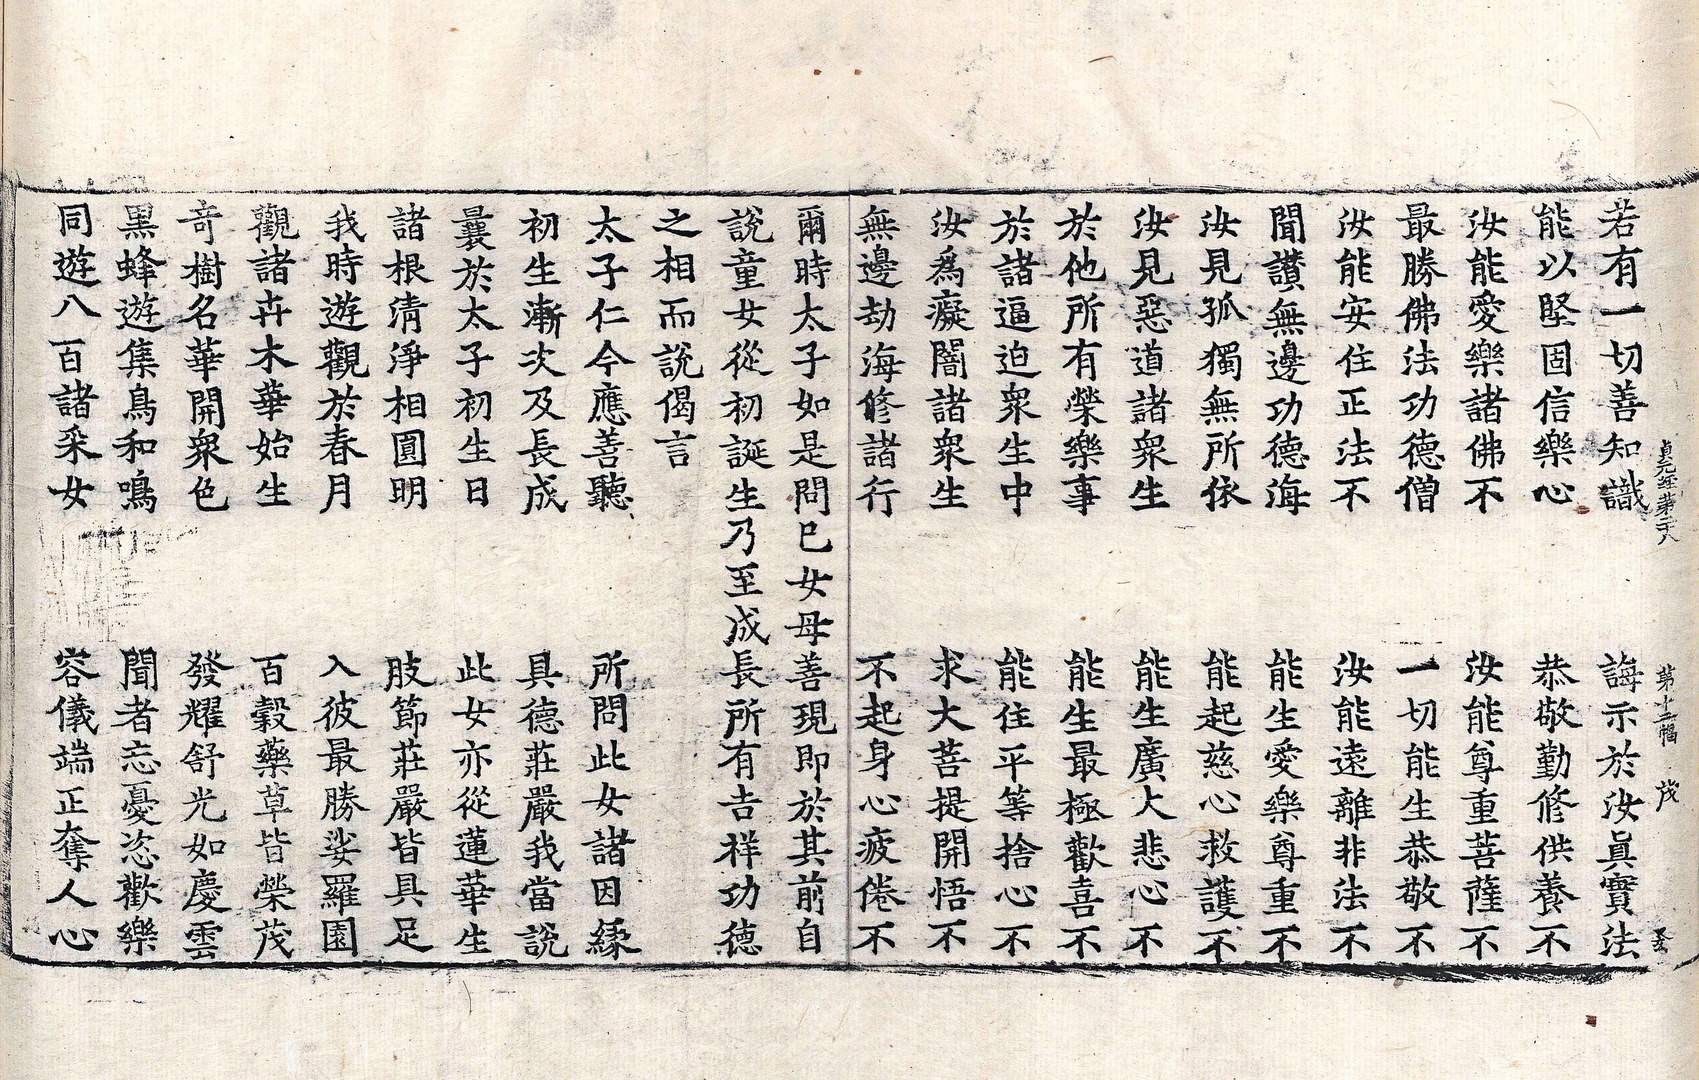 若有一切善知識　誨示於汝眞寶法
能以堅固信樂心　恭敬勤修供養不
汝能愛樂諸佛不　汝能尊重菩薩不
最勝佛法功德僧　一切能生恭敬不
汝能安住正法不　汝能遠離非法不
聞讃無邊功德海　能生愛樂尊重不
汝見孤獨無所依　能起慈心救護不
汝見惡道諸衆生　能生廣大悲心不
於他所有榮樂事　能生最極歡喜不
於諸逼迫衆生中　能住平等捨心不
汝爲癡闇諸衆生　求大菩提開悟不
無邊劫海修諸行　不起身心疲倦不
爾時太子如是問已女母善現即於其前自
說童女從初誕生乃至成長所有吉祥功德
之相而說偈言
太子仁今應善聽　所問此女諸因緣
初生漸次及長成　具德莊嚴我當說
曩於太子初生日　此女亦從蓮華生
諸根清淨相圓明　肢節莊嚴皆具足
我時遊觀於春月　入彼最勝娑羅園
觀諸卉木華始生　百穀藥草皆榮茂
奇樹名華開衆色　發耀舒光如慶雲
黑蜂遊集鳥和鳴　聞者忘憂恣歡樂
同遊八百諸采女　容儀端正奪人心